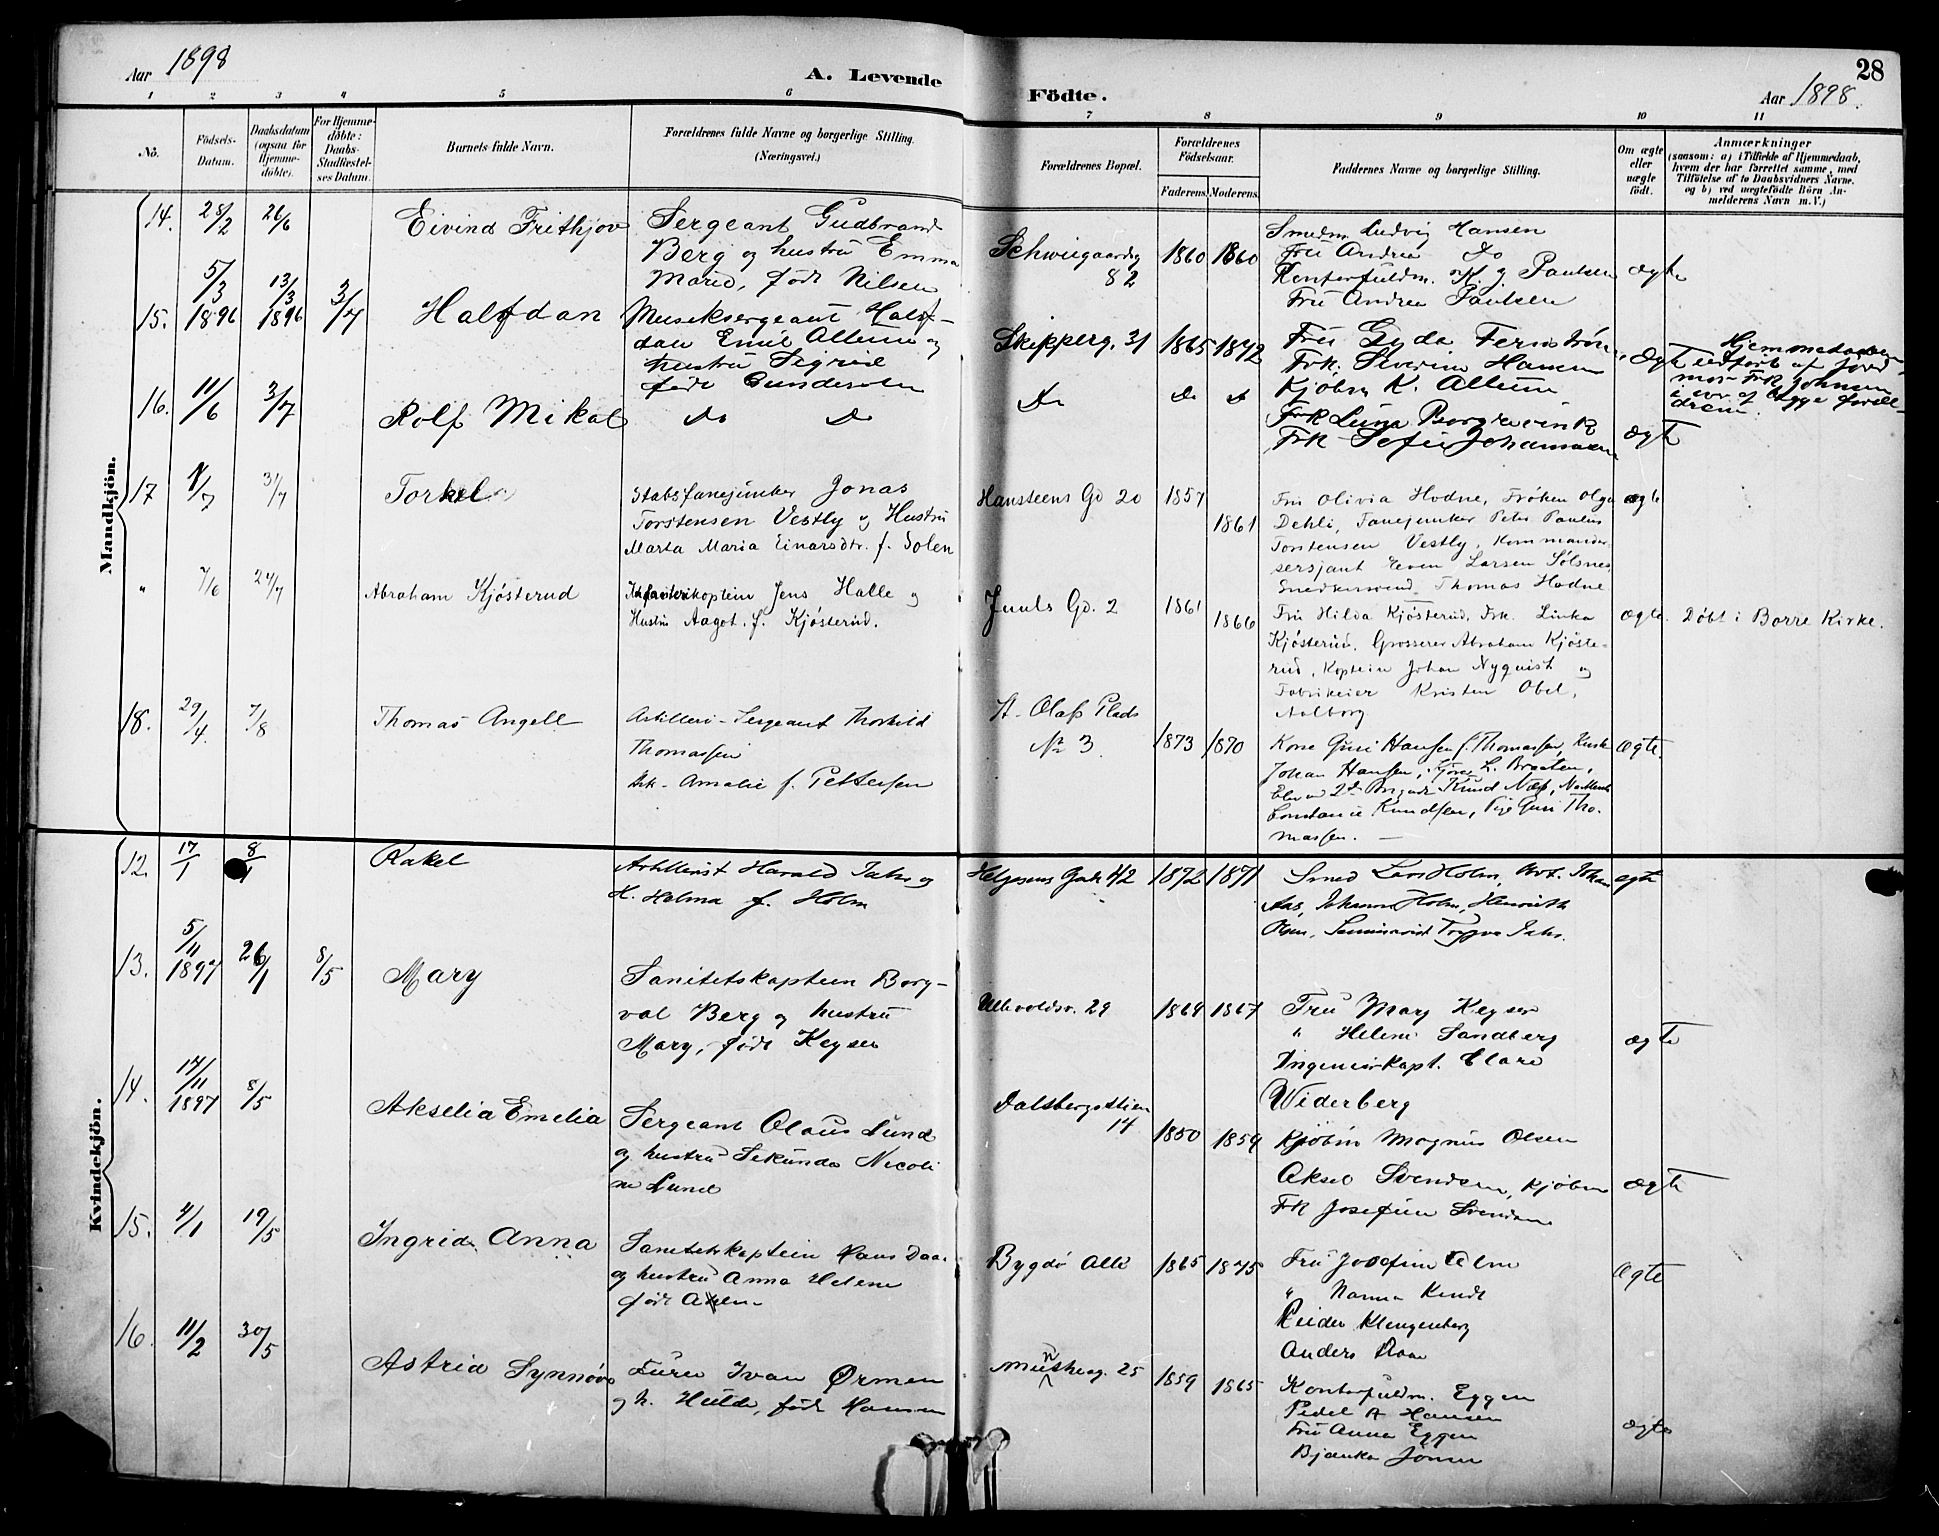 Aar 1898
A. Levende
Födte.
Aar 1898.
28
1 2 3 4 5 6 7 8 9 10 11
No.
Födsels-
Datum.
Daabsdatum
(ogsaa for
Hjemme-
döbte).
For Hjemme-
döbte:
Daabs-
Stadfæstel-
ses Datum.
Barnets fulde Navn.
Forældrenes fulde Navne og borgerlige Stilling.
(Næringsvei.)
Forældrenes Bopæl.
Forældrenes
Födselsaar.
Faderens. Moderens.
Faddernes Navne og borgerlige Stilling.
Om ægte
eller
uægte
født.
Anmærkninger
(saasom: a) i Tilfælde af Hjemmedaab,
hvem der har forrettet samme, med
Tilföielse af to Daabsvidners Navne.
og b) ved uægtefödte Börn An-
melderens Navn m. V.)
Mandkjön.
14. 28/2 26/6 Eivind Frithjov
Sergeant Gudbrand
Berg og hustru Emma
Marie, født Nilsen
Schweigaardsg
82
1860 1860
Smedm. Ludvig Hansen
Fru Andrea Do
Kontorfuldm. K. J. Paulsen
Fru Andrea Paulsen
ægte
15. 5/3 1896 13/3 1896 3/7 Halfdan
Musiksergeant Half-
dan Emil Altern og
hustru Sigrid
født Gundersen
Skipperg. 31
1865 1872
Fru Gyda
Frk. Severine Hansen
Kjøbm K. Altern
ægte
Hjemmedaaben
udført af Jord
mor Frk Johnsen
i nær. af begge foræl-
drene.
16. 11/6 3/7 Rolf Mikal
Do Do
Do
Do Do
Frk Luna Borgrevink
Frk Sofie Johannsen
ægte
17 1/7 31/7 Torkel
Stabsfanejunker Jonas
Torstensen Vestly og Hustru
Marta Maria Einarsdtr. f. Solen
Hansteens Gd 20
1857
1861
Fru Olivia Hodne, Frøken Olga
Dehli, Fanejunker Peter Paulus
Torstensen Vestly, Kommander
sersjant Even Larsen Sølsnes,
Snedkersvend Thomas Hodne
ægte
" 7/6 24/7 Abraham Kjøsterud
Infanterikaptein Jens Halle og
Hustru Aagot. f. Kjøsterud.
Juuls Gd. 2
1861
1866
Fru Hilda Kjøsterud, Frk. Linka
Kjøsterud, Grosserer Abraham Kjøste-
rud, Kaptein Johan Nyquist og
Fabrikeier Kristen Obel,
Aalborg
ægte.
Døbt i Borre Kirke.
18. 29/4. 7/8 Thomas Angell
Artilleri-Sergeant Thorkild
Thomassen
Amalie f. Pettersen
St. Olafs Plads
No 3
1873 1870
Kone Guri Hansen f. Thomassen,
Johan Hansen, L. Braaten,
Elev 2den Knud Næss,
Constance Knudsen, Pige Guri Tho-
massen. —
ægte.
Kvindekjön.
12. 17/1 8/ Rakel
Artillerist Harald Jahr og
H. Helma f. Holm
Helgesens Gade 42
1872 1871
Smed Lars Holm, Johan
Aas, Johanna Holm, Henriette
Seminarist Trygve Jahr.
ægte
13. 5/11 1897 26/1 8/5 Mary
Sanitetskaptein Borg-
val Berg og hustru
Mary, født Keyser
Ullevoldsv. 29
1864 1867
Fru Mary Keyser
" Helene Sandberg
Ingeniørkapt. Elare
Widerberg
ægte
14. 14/11 1897 8/5 Akselia Emelia
Sergeant Olaus Lund
og hustru Sekunda Nicoli
ne Lund
Dalsbergstien
14
1850 1859
Kjøbm Magnus Olsen
Aksel Svendsen, Kjøbm
Frk Josefine Svendsen
ægte
15. 4/1 19/5 Ingrid Anna
Sanitetskaptein Hans Daae
og hustru Anna Helene
født
Bygdø Allé
1865 1875
Fru Josefine Alme
" Nanna Kindt
Reider Klingenberg
Anders Daae
ægte
16. 11/2 30/5 Astrid Synnøve
Furer Ivar Ørmen
og h. Hulda, født Hansen
Munkeg. 25
1859 1865
Kontorfuldm. Eggen
Pedel A Hansen
Fru Anna Eggen
Bjanka
ægte